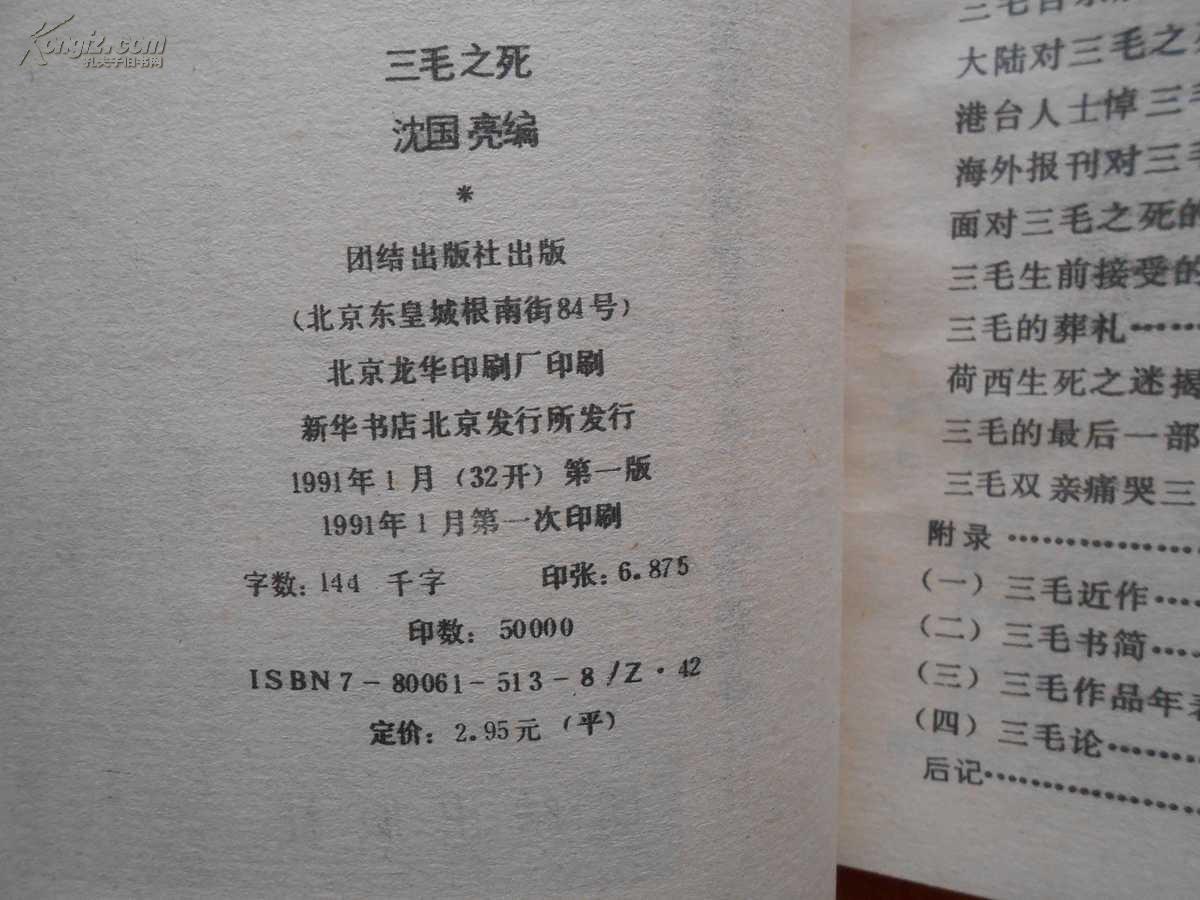 Kongfz.com
孔夫子旧书网
三毛之死
沈国亮编
*
团结出版社出版
(北京东皇城根南街84号)
北京龙华印刷厂印刷
新华书店北京发行所发行
1991年1月(32开)第一版
1991年1月第一次印刷
字数:144 千字 印张:6.875
印数:50000
ISBN7-80061-513-8/Z·42
定价:2.95元(平)
三毛自杀
大陆对三毛之死
港台人士悼三毛
海外报刊对三毛
面对三毛之死的
三毛生前接受的
三毛的葬礼……
荷西生死之迷揭
三毛的最后一部
三毛双亲痛哭三
附录……………
(一)三毛近作……
(二)三毛书简……
(三)三毛作品年表
(四)三毛论………
后记………………